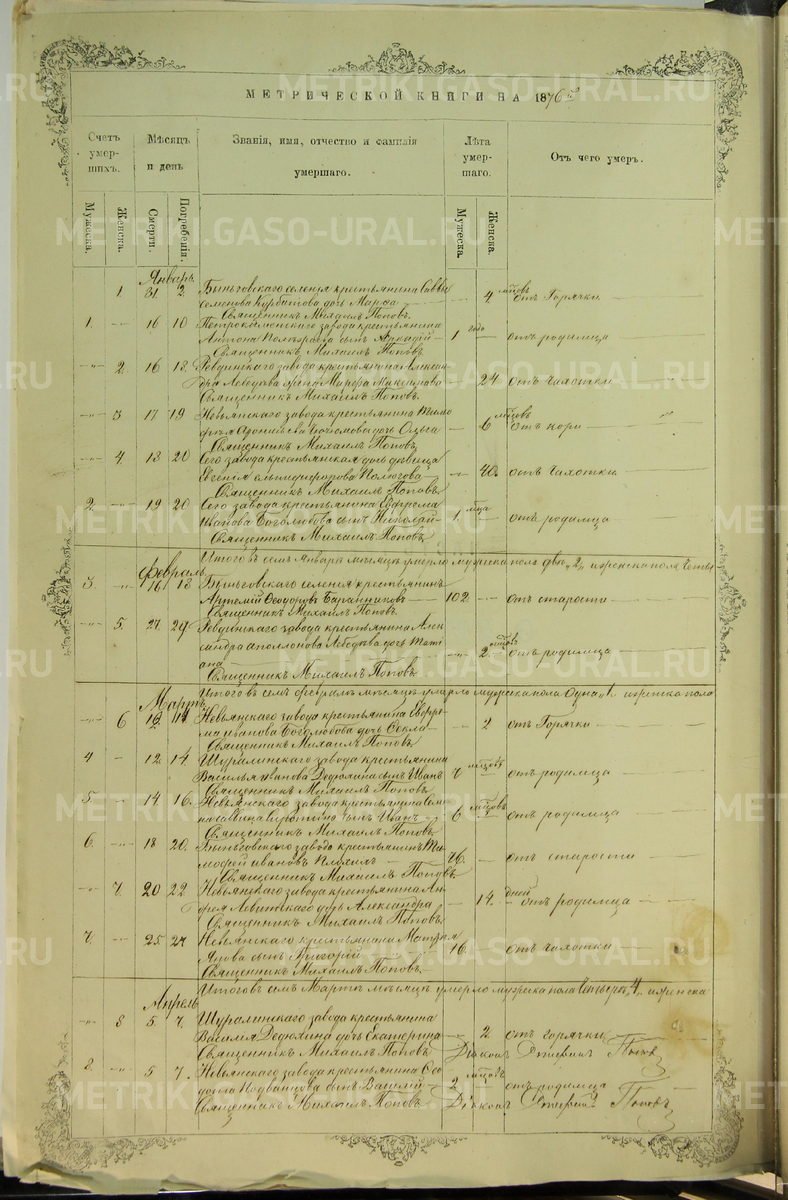 МЕТРИЧЕСКОЙ КНИГИ НА 1876
Счетъ умершихъ.
Мѣсяцъ и день
Званія, имя, отчество и фамилія умершаго.
Лѣта умершаго.
Отъ чего умеръ.
Мужеска.
Женска.
Смерти.
Погребенія.
Мужеска.
Женска.
Январь
1. 31 2. Быньговскаго селенія крестьянина Саввы
Семенова Курбатова дочь Марѳа 4 отъ Горячки
Священникъ Михаилъ Поповъ.
1. 16 10 Петрокаменскаго завода крестьянина
сынъ Аркадій 1 года отъ родимца
Священникъ Михаилъ Поповъ
2. 16 18. Ревдинскаго завода крестьянина Алексан
дра Лебедева жена 24 отъ чахотки
Священникъ Михаилъ Поповъ.
3 17 19 Невьянскаго завода крестьянина Тимо
дочь Ольга 6 отъ кори
Священникъ Михаилъ Поповъ
4. 18 20 Сего завода крестьянская дочь дѣвица
Евгенія 40. отъ чахотки
Священникъ Михаилъ Поповъ
2. 19 20 Сего завода крестьянина Ефрема
Иванова Боголюбова сынъ Николай 1. отъ родимца
Священникъ Михаилъ Поповъ.
Итого въ семъ Январѣ мѣсяцѣ умерло мужеска пола два „2„ женска пола четы
Февраль
3. 16 18 Быньговскаго селенія крестьянинъ
Артемій Ѳеодоровъ Баранниковъ 102. отъ старости
Священникъ Михаилъ Поповъ
5. 27 29. Ревдинскаго завода крестьянина Алек
сандра Аполлонова Лебедева дочь Тати
ана 2 отъ родимца
Священникъ Михаилъ Поповъ
Итого въ семъ Февралѣ мѣсяцѣ умерло мужеска пола одна „1„ женска пола
Мартъ
6 14 Невьянскаго завода крестьянина Ефре
ма Иванова Боголюбова дочь Ѳекла 2 отъ Горячки
Священникъ Михаилъ Поповъ
4 12. 14. Шуралинскаго завода крестьянина
Василья Иванова Дедюхина сынъ Иванъ 7 отъ родимца
Священникъ Михаилъ Поповъ
5 14 16. Невьянскаго завода крестьянина
сынъ Иванъ 6 отъ родимца
Священникъ Михаилъ Поповъ
6. 18 20. Быньговскаго завода крестьянинъ Ти
мофей Ивановъ 76. отъ старости
Священникъ Михаилъ Поповъ.
7. 20 22 Невьянскаго завода крестьянина Ан
дрея Левитскаго дочь Александра 14. дней отъ родимца
Священникъ Михаилъ Поповъ
7. 25 27 Невьянскаго крестьянина
сынъ Григорій 16. отъ чахотки
Священникъ Михаилъ Поповъ
Итого въ семъ Мартѣ мѣсяцѣ умерло мужеска пола четыре „4„ женска
Апрель
8 5 7. Шуралинскаго завода крестьянина
Василія Дедюхина дочь Екатерина 2. отъ горячки
Священникъ Михаилъ Поповъ Діаконъ Поповъ
8. 5 7. Невьянскаго завода крестьянина Ѳео
дота сынъ Василій 2 отъ родимца
Священникъ Михаилъ Поповъ Діаконъ Поповъ
METRIKI.GASO-URAL.RU